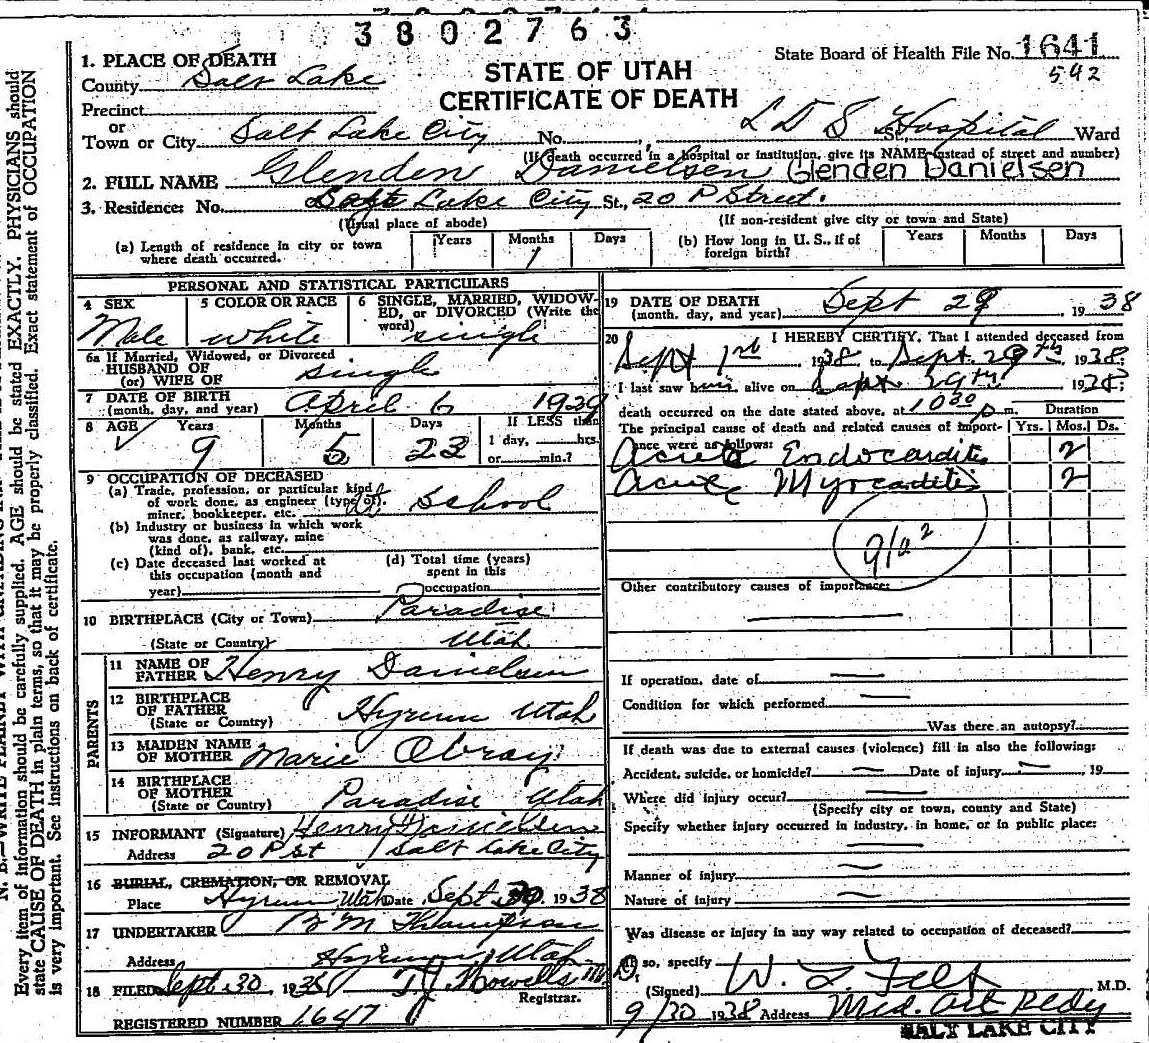 3802763
State Board of Health File No. 1641
592
1. PLACE OF DEATH
County Salt Lake
STATE OF UTAH
CERTIFICATE OF DEATH
Precinct
or
Town or City Salt Lake City No. L D S Hospital St., Ward
(If death occurred in a hospital or institution, give its NAME instead of street and number)
2. FULL NAME Glenden Danielsen Glenden Danielsen
3. Residence: No. Salt Lake City St., 20 P Street.
(Usual place of abode) (If non-resident give city or town and State)
(a) Length of residence in city or town where death occurred. Years Months 1 Days
(b) How long in U. S., if of foreign birth? Years Months Days
PERSONAL AND STATISTICAL PARTICULARS
4 SEX Male
5 COLOR OR RACE white
6 SINGLE, MARRIED, WIDOWED, or DIVORCED (Write the word) single
6a If Married, Widowed, or Divorced
HUSBAND OF
(or) WIFE OF single
7 DATE OF BIRTH
(month, day, and year) April 6 1929
8 AGE Years 9 Months 5 Days 23 If LESS than 1 day, hrs. or min.?
9 OCCUPATION OF DECEASED
(a) Trade, profession, or particular kind
of work done, as engineer (type of),
miner, bookkeeper, etc. at school
(b) Industry or business in which work
was done, as railway, mine
(kind of), bank, etc.
(c) Date deceased last worked at
this occupation (month and
year)
(d) Total time (years)
spent in this
occupation
10 BIRTHPLACE (City or Town) Paradise
(State or Country) Utah
PARENTS
11 NAME OF
FATHER Henry Danielsen
12 BIRTHPLACE
OF FATHER
(State or Country) Hyrum Utah
13 MAIDEN NAME
OF MOTHER Marie Obray
14 BIRTHPLACE
OF MOTHER
(State or Country) Paradise Utah
15 INFORMANT (Signature) Henry Danielsen
Address 20 P St Salt Lake City
16 BURIAL, CREMATION, OR REMOVAL
Place Hyrum, Utah Date Sept 30, 1938
17 UNDERTAKER B M Thompson
Address Hyrum Utah
18 FILED Sept. 30 1938 T J Howells MD.
Registrar.
REGISTERED NUMBER 1647
19 DATE OF DEATH
(month, day, and year) Sept 29 1938
20 I HEREBY CERTIFY, That I attended deceased from
Sept 1st 1938 to Sept. 29th 1938
I last saw him alive on Sept 29th 1938;
death occurred on the date stated above, at 10 30 p m.
Duration
The principal cause of death and related causes of importance were as follows: Yrs. Mos. Ds.
Acute Endocarditis 2
Acute Myocarditis 2
91a2
Other contributory causes of importance:
If operation, date of
Condition for which performed
Was there an autopsy?
If death was due to external causes (violence) fill in also the following:
Accident, suicide, or homicide? Date of injury , 19
Where did injury occur?
(Specify city or town, county and State)
Specify whether injury occurred in industry, in home, or in public place:
Manner of injury
Nature of injury
Was disease or injury in any way related to occupation of deceased?
If so, specify
(Signed) W. L. Felt M.D.
9/30 1938 Address Med. Art Bldg
SALT LAKE CITY
Every item of information should be carefully supplied. AGE should be stated EXACTLY. PHYSICIANS should
state CAUSE OF DEATH in plain terms, so that it may be properly classified. Exact statement of OCCUPATION
is very important. See instructions on back of certificate.